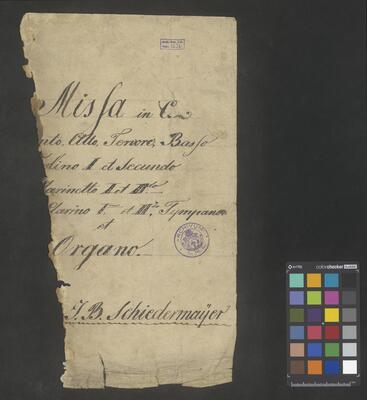 Missa in C.
nto, Alto, Tenore, Basso
olino I et Secundo
larinetto I et IIdo
larino I et IIdo, Tympano
et
Organo.
J. B. Schiedermayer
colorchecker